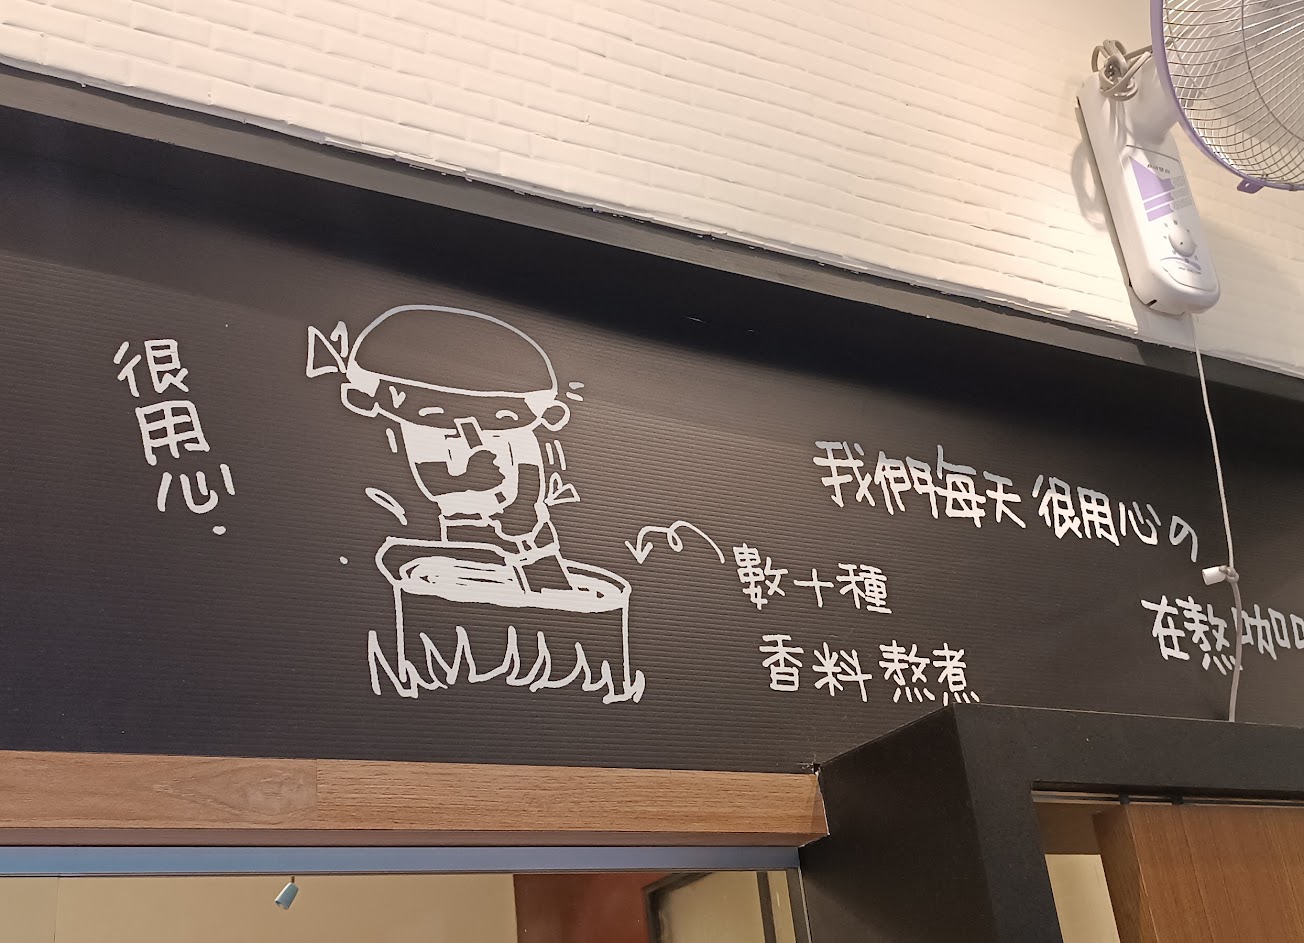 很用心.
我們每天很用心の
數十種
香料熬煮
在熬咖